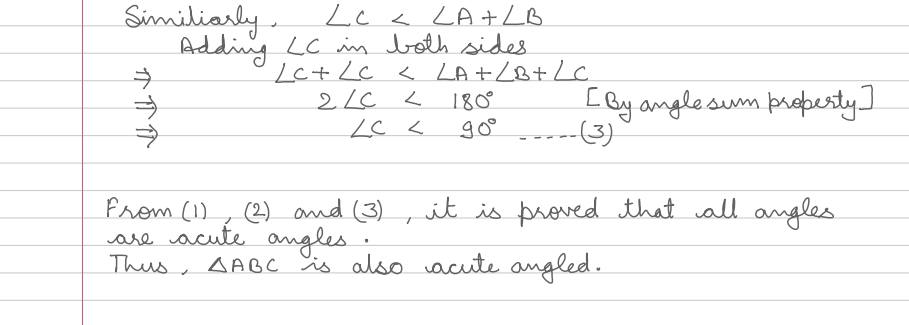 Similiarly, ∠C < ∠A + ∠B
Adding ∠C in both sides
⇒ ∠C + ∠C < ∠A + ∠B + ∠C
⇒ 2∠C < 180° [By angle sum property]
⇒ ∠C < 90° -----(3)
From (1), (2) and (3), it is proved that all angles
are acute angles.
Thus, △ABC is also acute angled.